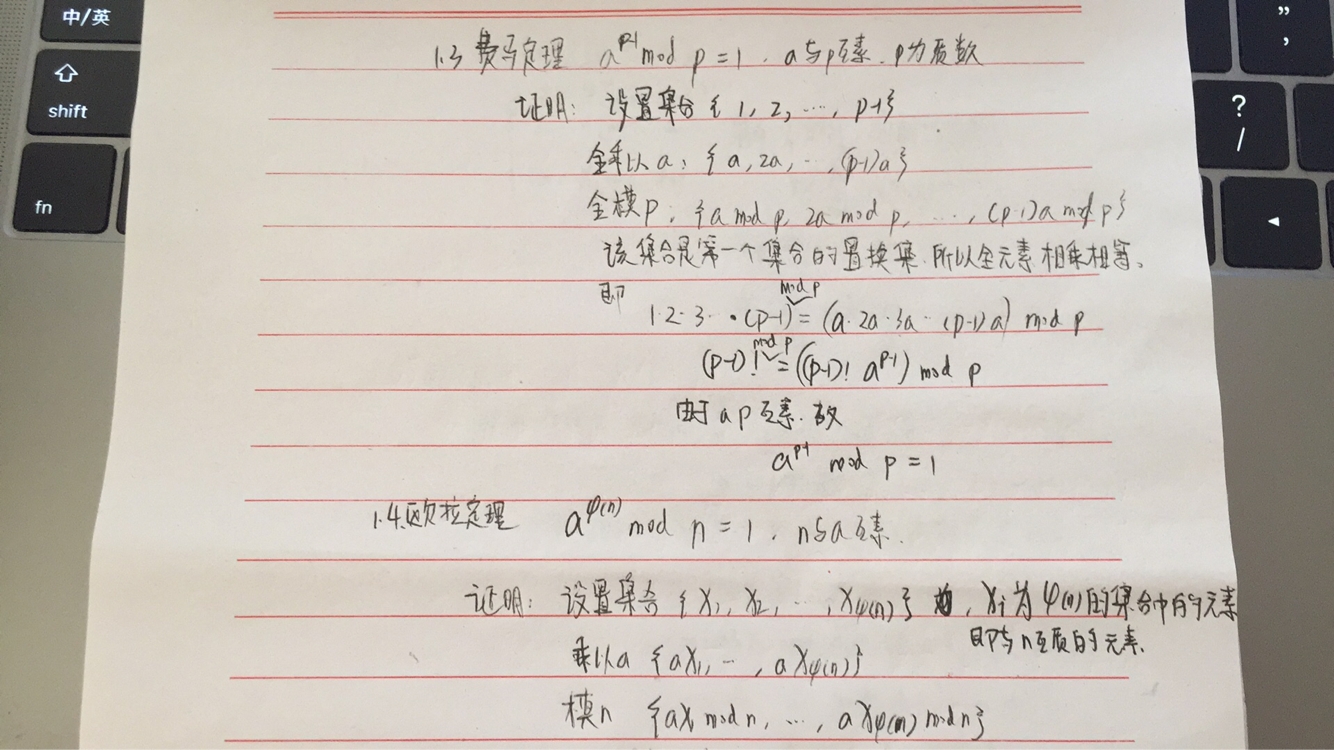 中/英
shift
fn
”
’
?
/
1.3 费马定理 a^{p-1} mod p = 1 . a与p互素. p为质数
证明: 设置集合 { 1, 2, ..., p-1}
全乘以a: { a, 2a, ..., (p-1)a }
全模p: {a mod p, 2a mod p, ......, (p-1)a mod p}
该集合是第一个集合的置换集.所以全元素相乘相等。
即
mod p
1·2·3···(p-1) = (a·2a·3a··(p-1)a) mod p
mod p
(p-1)! = ((p-1)! a^{p-1}) mod p
由于 a p 互素.故
a^{p-1} mod p = 1
1.4.欧拉定理 a^{φ(n)} mod n = 1 . n与a互素.
证明: 设置集合 {X₁, X₂, ..., X_{φ(n)}} , Xi为φ(n)的集合中的元素
即与n互质的元素.
乘以a {aX₁, ..., aX_{φ(n)}}
模n {aX₁ mod n, ..., aX_{φ(n)} mod n}